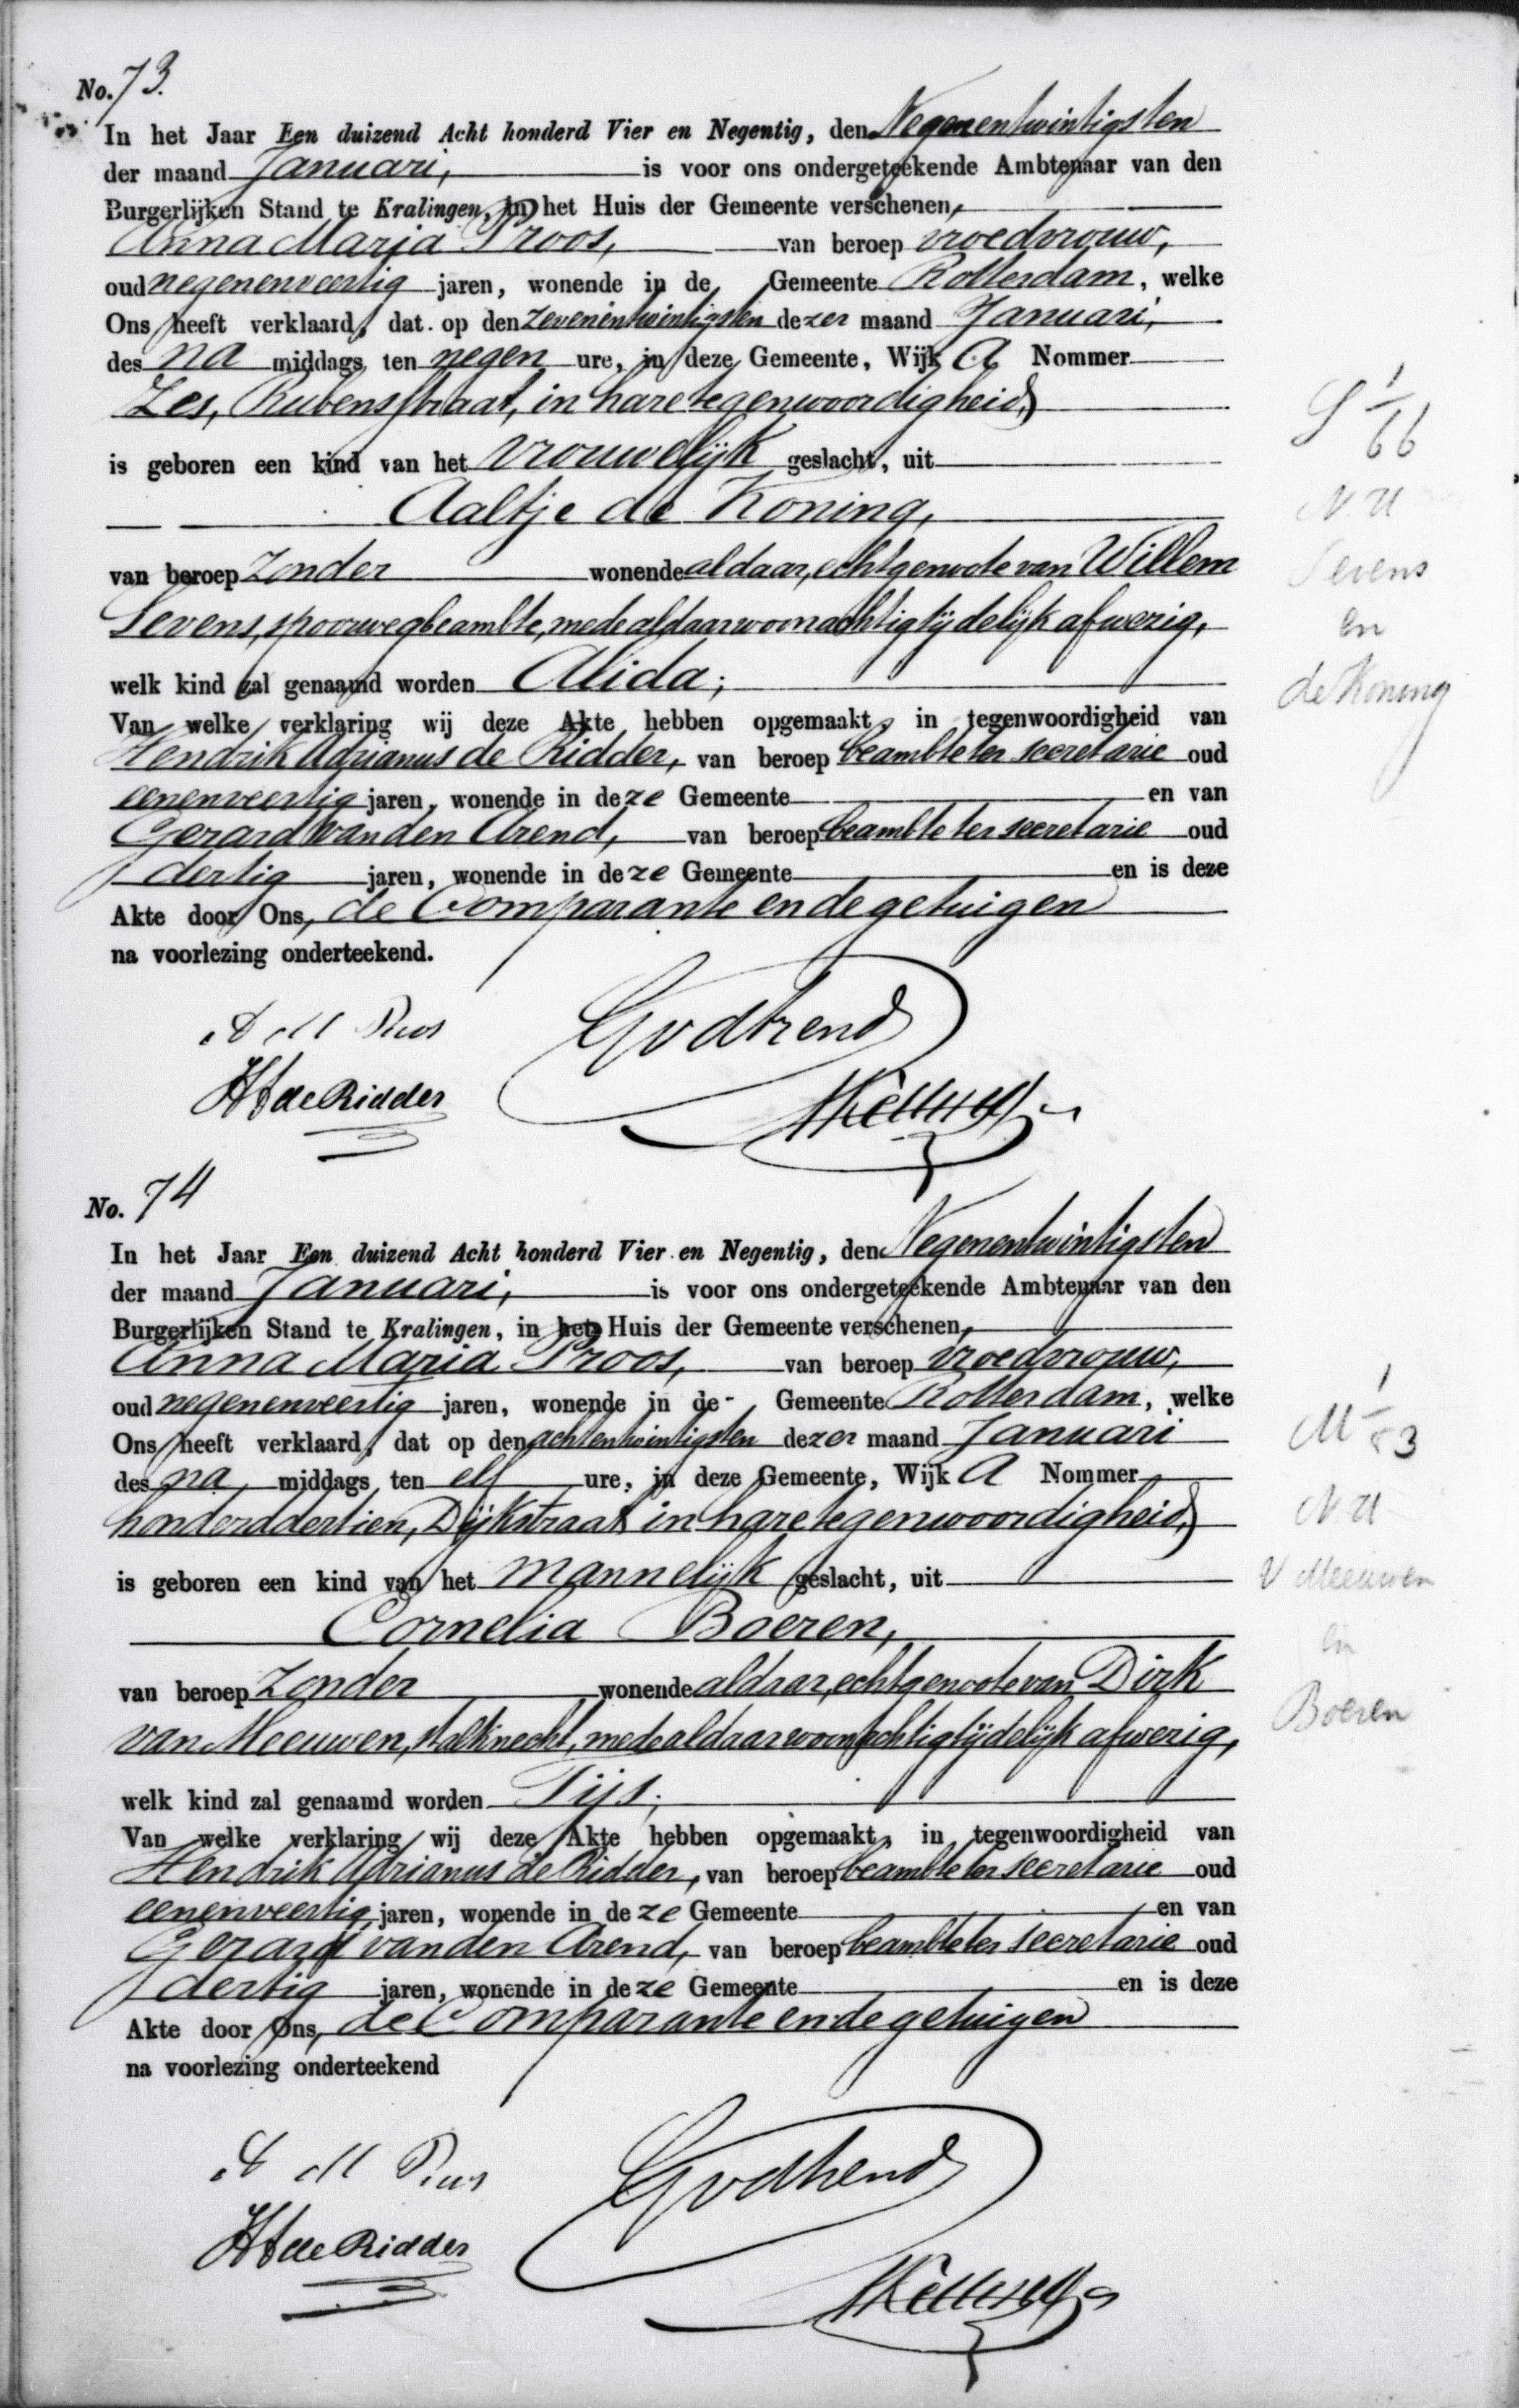 No. 73.
In het Jaar Een duizend Acht honderd Vier en Negentig, den Negenentwintigsten
der maand Januari, is voor ons ondergeteekende Ambtenaar van den
Burgerlijken Stand te Kralingen, in het Huis der Gemeente verschenen,
Anna Maria Proos, van beroep vroedvrouw,
oud negenenveertig jaren, wonende in de Gemeente Rotterdam, welke
Ons heeft verklaard, dat op den zevenentwintigsten dezer maand Januari,
des na middags ten negen ure, in deze Gemeente, Wijk A Nommer
Zes, Rubensstraat, in hare tegenwoordigheid,
is geboren een kind van het vrouwelijk geslacht, uit
Aaltje de Koning,
van beroep zonder wonende aldaar, echtgenoote van Willem
Sevens, spoorwegbeambte, mede aldaar woonachtig tijdelijk afwezig,
welk kind zal genaamd worden Alida;
Van welke verklaring wij deze Akte hebben opgemaakt, in tegenwoordigheid van
Hendrik Adrianus de Ridder, van beroep beambte ter secretarie oud
eenenveertig jaren, wonende in deze Gemeente en van
Gerard van den Arend, van beroep beambte ter secretarie oud
dertig jaren, wonende in deze Gemeente en is deze
Akte door Ons, de Comparante en de getuigen
na voorlezing onderteekend.
A M Proos
GvdArend
HAdeRidder
S 1/66
N. U
Sevens
en
de Koning
No. 74
In het Jaar Een duizend Acht honderd Vier en Negentig, den Negenentwintigsten
der maand Januari, is voor ons ondergeteekende Ambtenaar van den
Burgerlijken Stand te Kralingen, in het Huis der Gemeente verschenen,
Anna Maria Proos, van beroep vroedvrouw,
oud negenenveertig jaren, wonende in de Gemeente Rotterdam, welke
Ons heeft verklaard, dat op den achtentwintigsten dezer maand Januari
des na middags ten elf ure, in deze Gemeente, Wijk A Nommer
honderddertien, Dijkstraat in hare tegenwoordigheid,
is geboren een kind van het mannelijk geslacht, uit
Cornelia Boeren,
van beroep zonder wonende aldaar, echtgenoote van Dirk
van Meeuwen, stalknecht, mede aldaar woonachtig tijdelijk afwezig,
welk kind zal genaamd worden Tijs;
Van welke verklaring wij deze Akte hebben opgemaakt, in tegenwoordigheid van
Hendrik Adrianus de Ridder, van beroep beambte ter secretarie oud
eenenveertig jaren, wonende in deze Gemeente en van
Gerard van den Arend, van beroep beambte ter secretarie oud
dertig jaren, wonende in deze Gemeente en is deze
Akte door Ons, de Comparante en de getuigen
na voorlezing onderteekend
A M Proos
GvdArend
HAdeRidder
M 1/53
N. U
V Meeuwen
en
Boeren